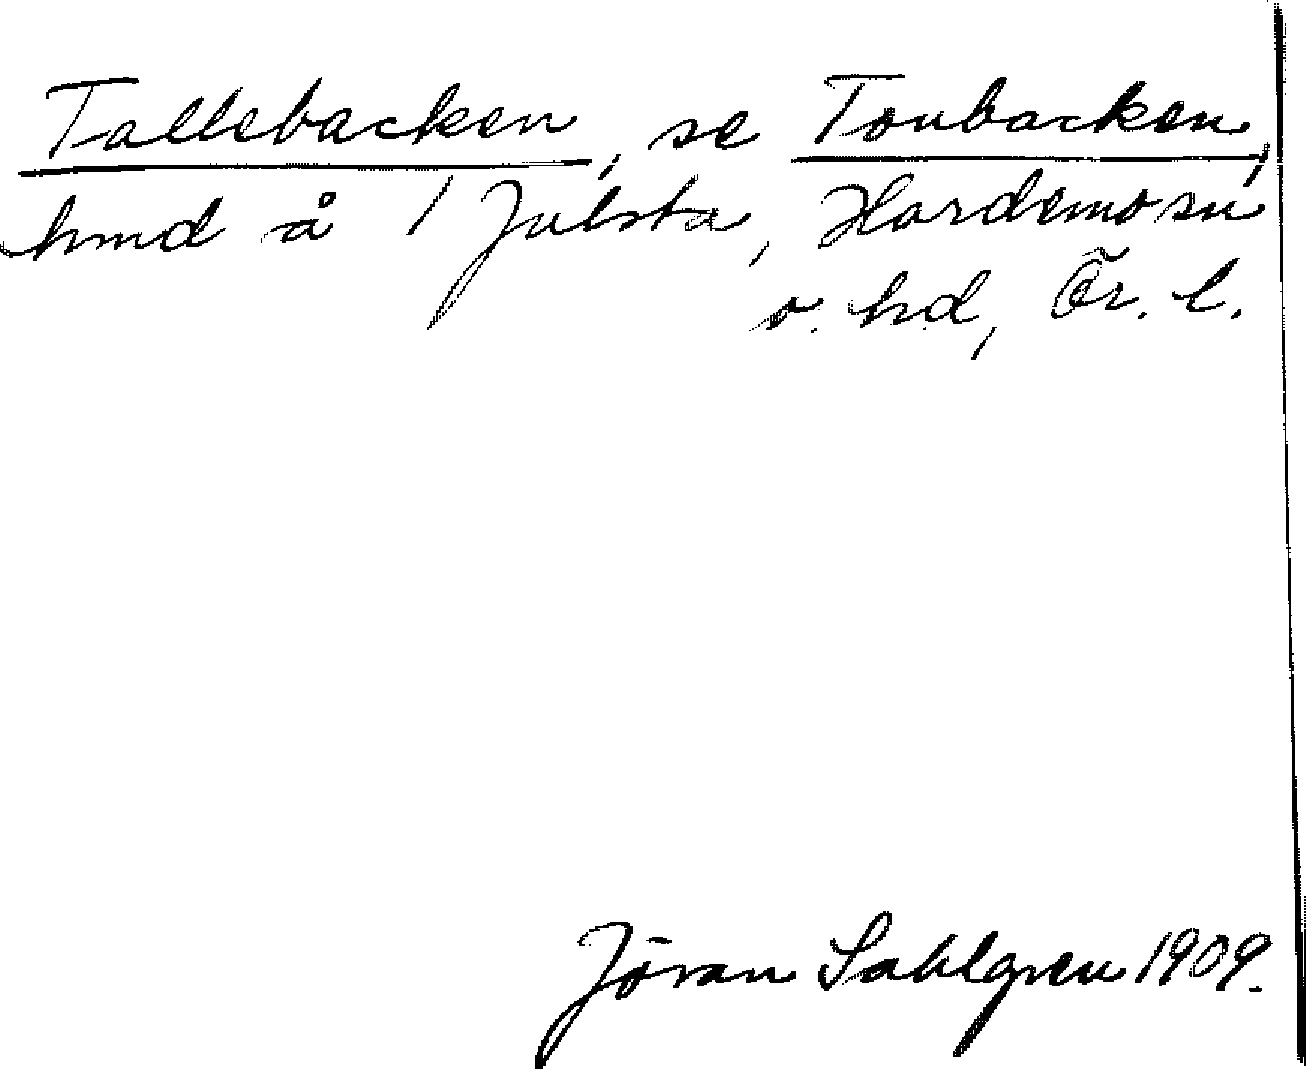 Tallebacken, se Tonbacken,
hmd å 1 Julsta, Hardemo sn
o. hd, Ör. l.
Jöran Sahlgren 1909.